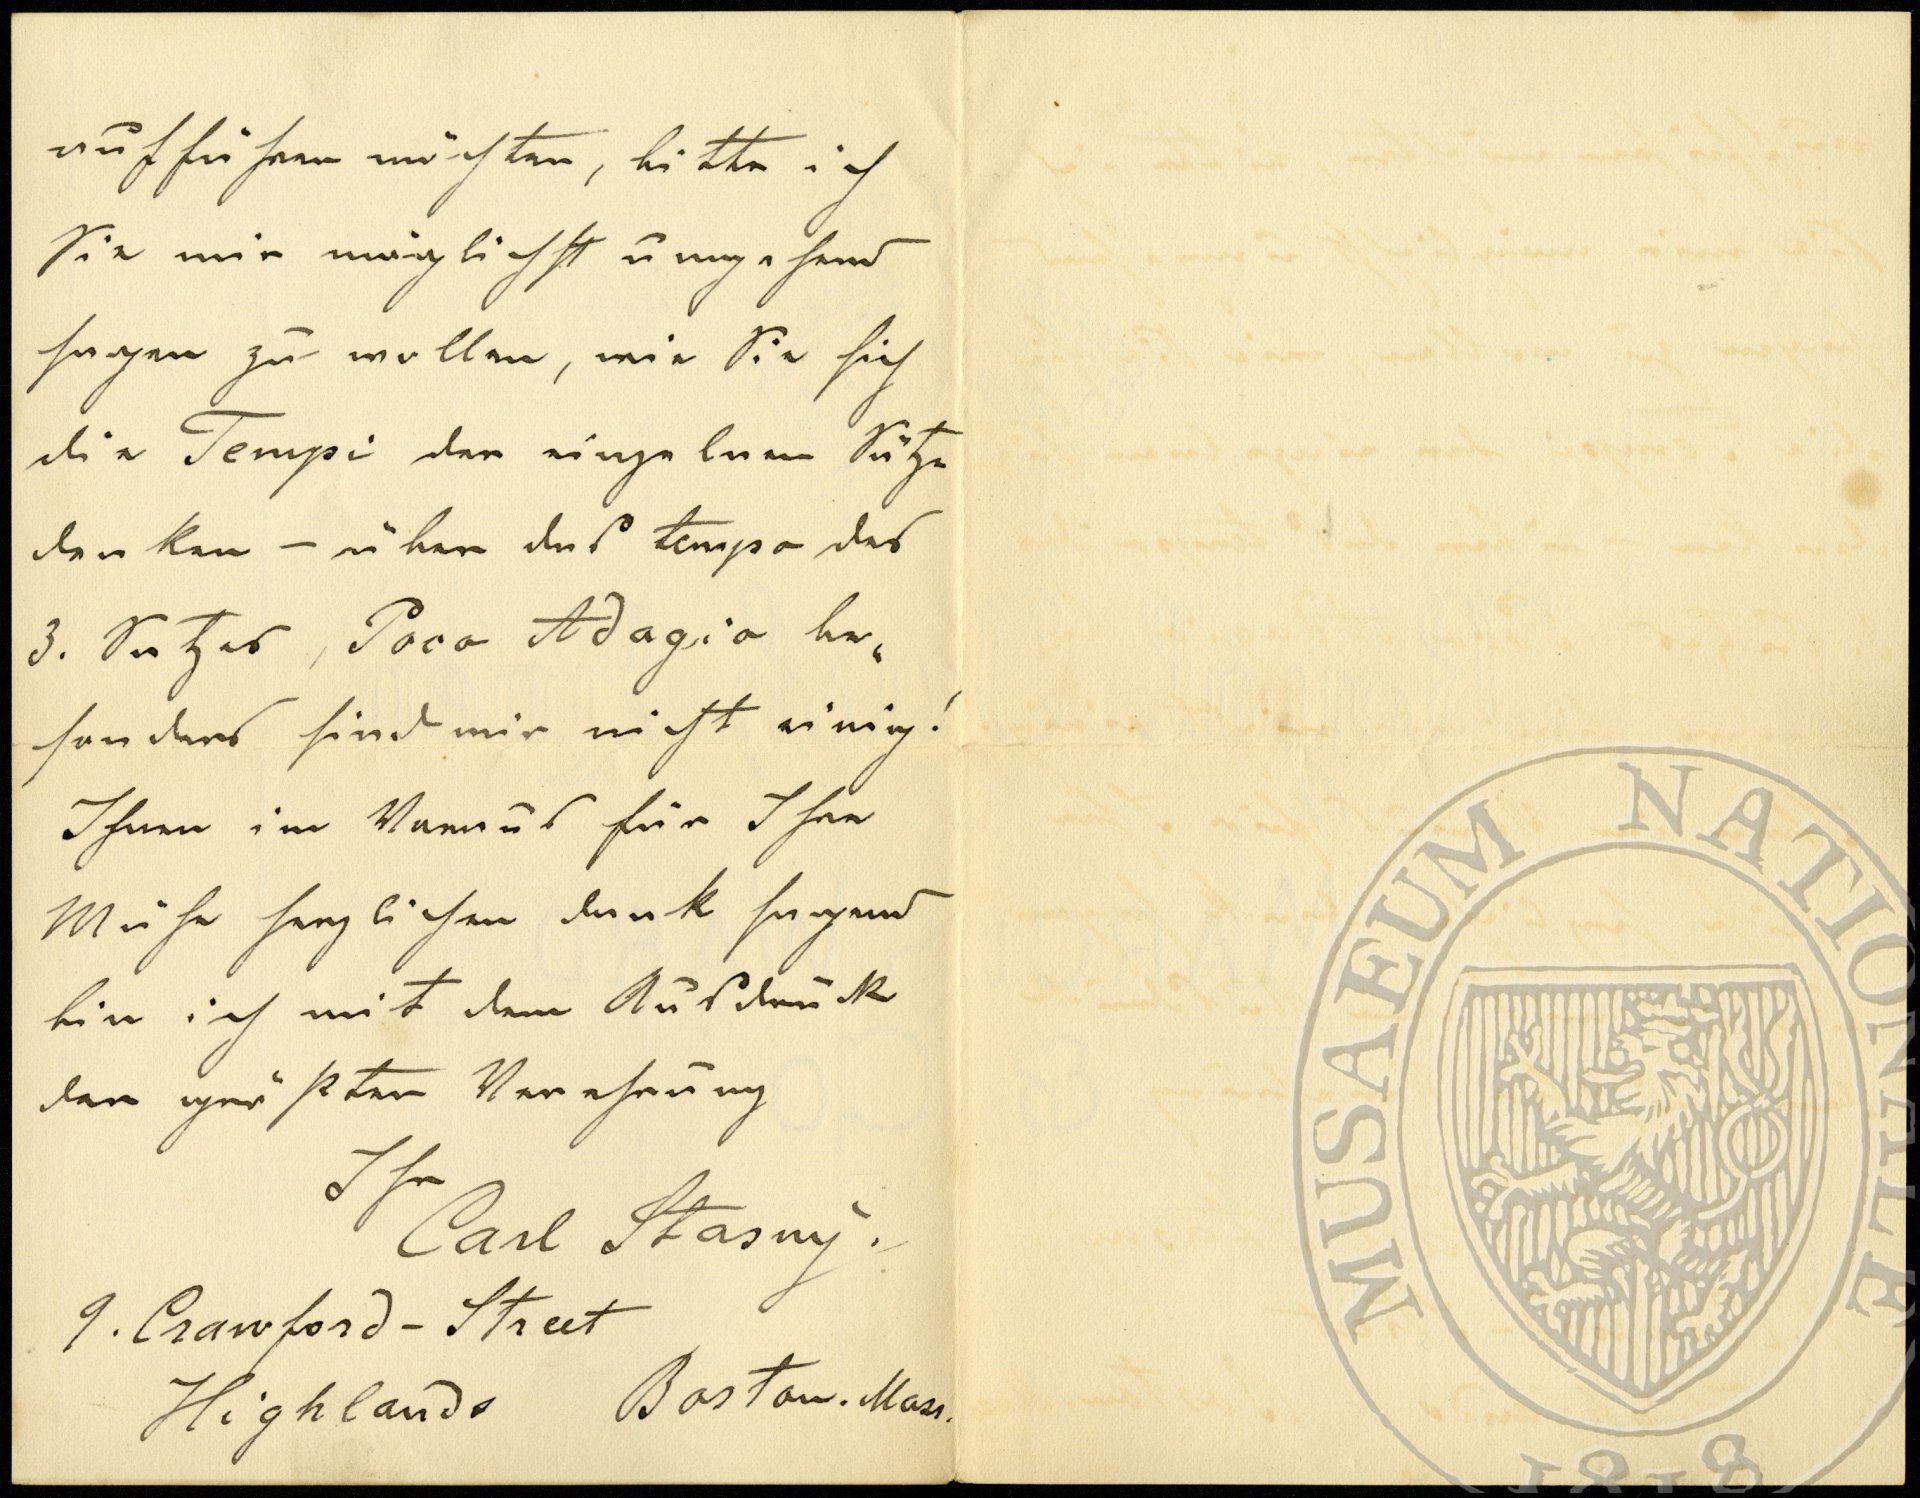 aufführen möchten, bitte ich
Sie mir möglichst umgehend
sagen zu wollen, wie Sie sich
die Tempi der einzelnen Sätze
denken – über das tempo des
3. Satzes, Poco Adagio be„
sonders sind wir nicht einig!
Ihnen im Voraus für Ihre
Mühe herzlichen dank sagend
bin ich mit dem Ausdruck
der größten Verehrung
Ihr
Carl Stasny.
9. Crawford-Street
Highlands Boston. Mass.
MUSAEUM NATIONALE
1818